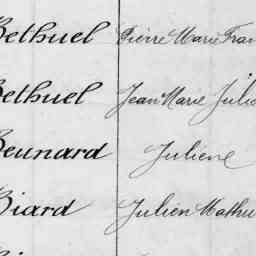 Bethuel Pierre Marie Fran
Bethuel Jean Marie Julie
Beunard Juliene
Biard Julien Mathu